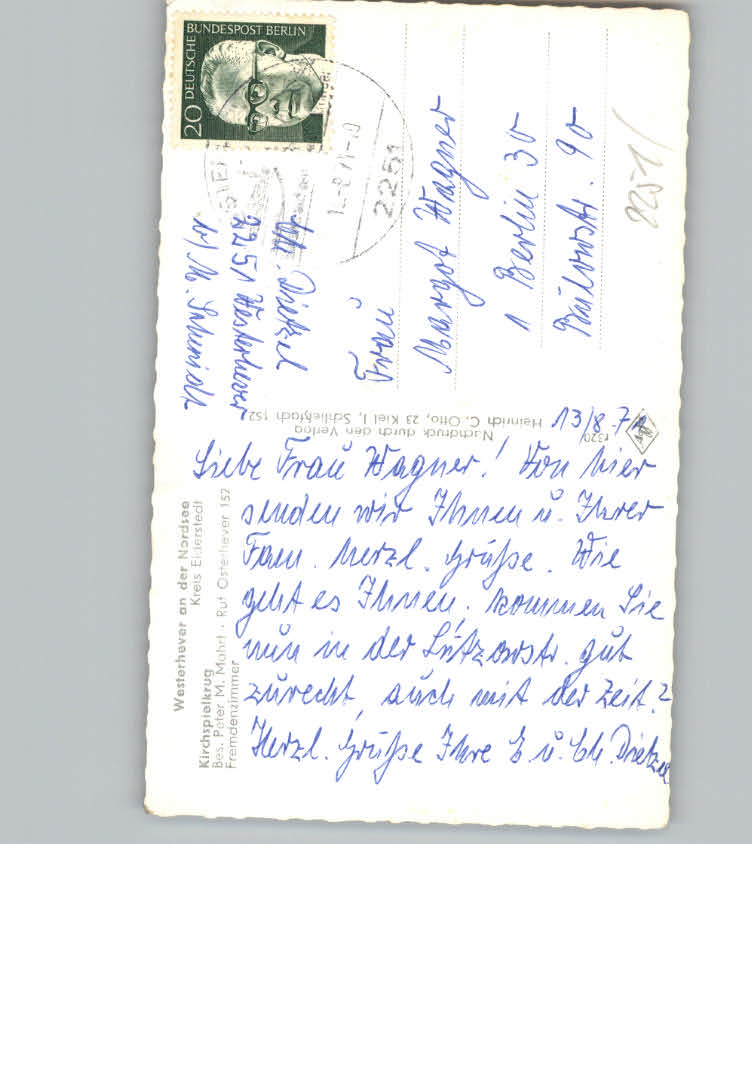 Westerhever an der Nordsee
Kreis Eiderstedt
Kirchspielkrug
Bes. Peter M. Mahrt · Ruf Osterhever 152
Fremdenzimmer
13/8-71
Liebe Frau Wagner! Von hier
senden wir Ihnen u. Ihrer
Fam. herzl. Grüße. Wie
geht es Ihnen, kommen Sie
nun in der Lützowstr. gut
zurecht, auch mit der Zeit?
Herzl. Grüße Ihre E u. Ch. Dietzel
Nachdruck durch den Verlag
Heinrich C. Otto, 23 Kiel 1, Schließfach 152
r320
Dietzel
2251 Westerhever
b/ M. Schmidt
DEUTSCHE BUNDESPOST BERLIN
20
2251
Frau
Margot Wagner
1 Berlin 30
Bülowstr. 90
2251